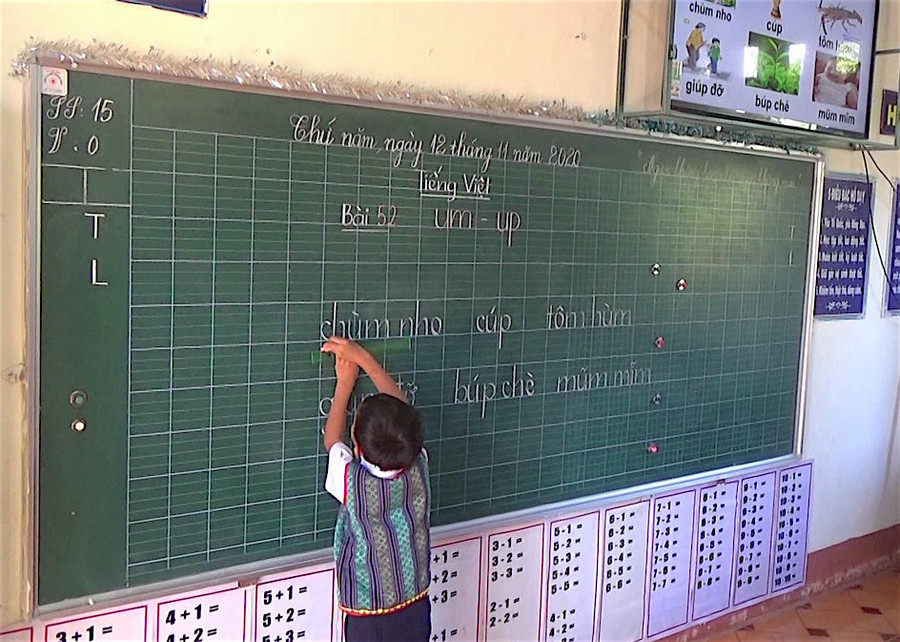 SS: 15
V. 0
T
L
Thứ năm, ngày 12 tháng 11 năm 2020
Tiếng Việt
Bài 52 um - up
chùm nho cúp tôm hùm
búp chè mũm mĩm
chùm nho cúp tôm
giúp đỡ búp chè mũm mĩm
5 ĐIỀU BÁC HỒ DẠY
3+1=
4+1=
4+2=
5+1=
5+2=
5+3=
+1=
+2=
+1=
3-1=
3-2=
3-3=
2-1=
2-2=
5-1=
5-2=
5-3=
5-4=
5-5=
4-1=
4-2=
6-1=
6-2=
6-3=
6-4=
6-5=
6-6=
7-1=
7-2=
7-3=
7-4=
7-5=
7-6=
7-7=
8-1=
8-2=
8-3=
8-4=
8-5=
8-6=
8-7=
8-8=
9-1=
9-2=
9-3=
9-4=
9-5=
9-6=
9-7=
9-8=
9-9=
10-1=
10-2=
10-3=
10-4=
10-5=
10-6=
10-7=
10-8=
10-9=